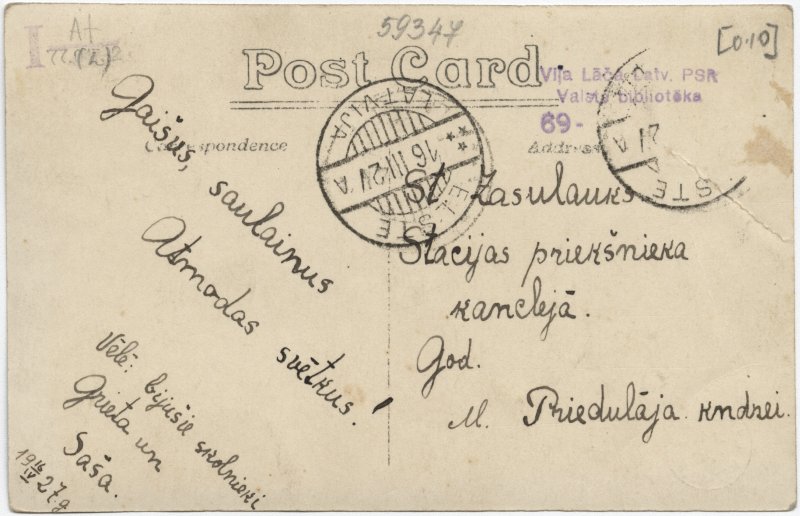 59347
[0.10]
Post Card
Vija Lāča Latv. PSR
Valsts bibliotēka
69-
Correspondence
Address
LATVIJA
Gaišus, saulainus
Atmodas svētkus!
Vēlē: bijušie skolnieki
Grieta un
Saša.
19 16/IV 27.g
St. Zasulauks
Stacijas priekšnieka
kanclejā.
God.
M. Priedulāja kndzei.